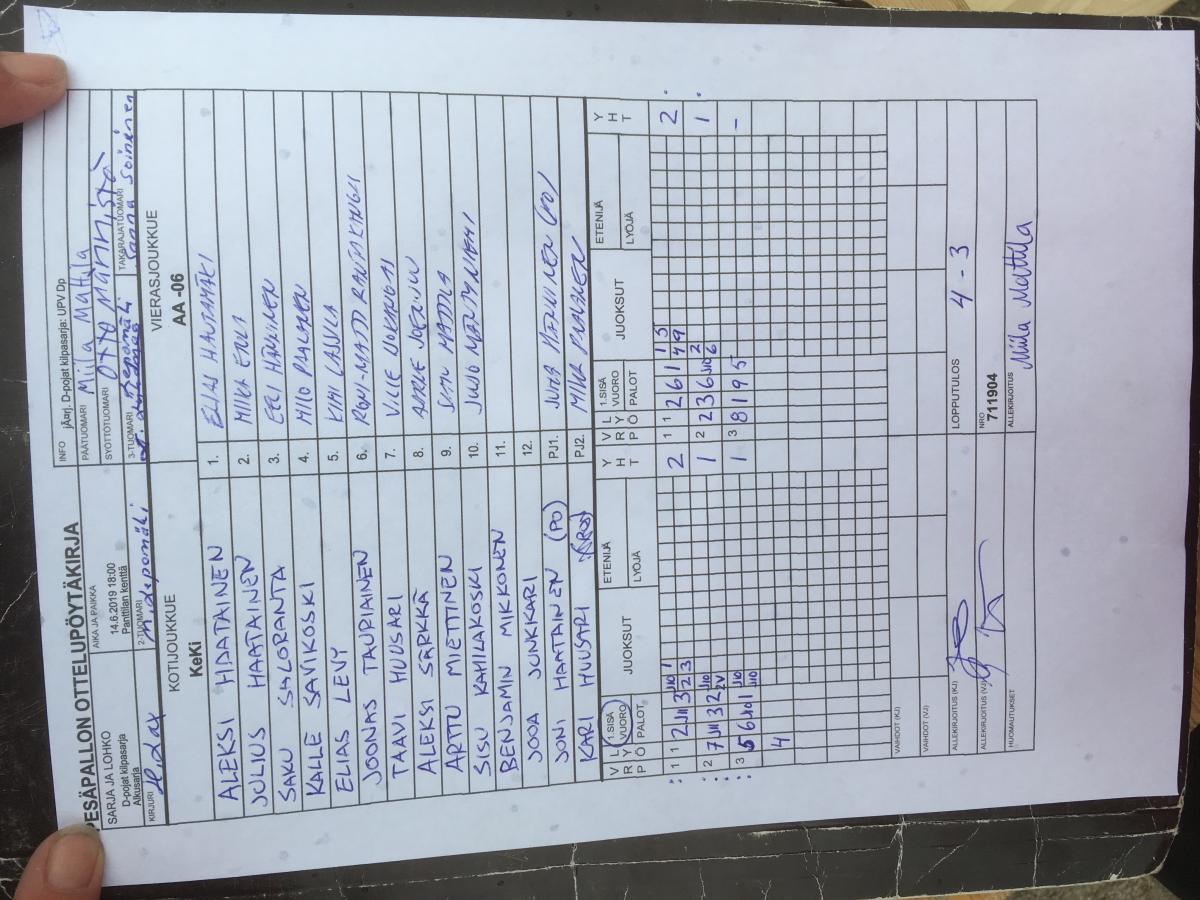 PESÄPALLON OTTELUPÖYTÄKIRJA
SARJA JA LOHKO
D-pojat kilpasarja
Alkusarja
AIKA JA PAIKKA
14.6.2019 18:00
Panttilan kenttä
INFO jÄ¤rj. D-pojat kilpasarja: UPV Dp
PÄÄTUOMARI Miila Mattila
SYÖTTÖTUOMARI Otto Männistö
KIRJURI
2-TUOMARI
3-TUOMARI
TAKARAJATUOMARI Sanna Soininen
KOTIJOUKKUE
KeKi
VIERASJOUKKUE
AA -06
ALEKSI HAATAINEN 1. ELIAS HAUTAMÄKI
JULIUS HAATAINEN 2. MIIKA
SAKU SALORANTA 3. EELI HÄNNINEN
KALLE SAVIKOSKI 4. MILO
ELIAS LEVY 5. KIMI LASSILA
JOONAS TAURIAINEN 6. RONI-MATTI RANTAKANGAS
TAAVI HUUSARI 7. VILLE
ALEKSI SÄRKKÄ 8.
ARTTU MIETTINEN 9. MATTILA
SISU KAHILAKOSKI 10. JUHO MANTYNIEMI
BENJAMIN MIKKONEN 11.
JOOA JUNKKARI 12.
JONI HAATAINEN (PO) PJ1. JUHA (PO)
KARI HUUSARI PJ2. MIKA
V R P L Y Ö 1.SISÄ VUORO PALOT JUOKSUT ETENIJÄ LYÖJÄ Y H T V R P L Y Ö 1.SISÄ VUORO PALOT JUOKSUT ETENIJÄ LYÖJÄ Y H T
1 1 2 J11 3 J10 1 2 3 2 1 1 2 6 1 1 3 4 9 2
2 7 J11 3 2 J10 2V 1 2 2 3 6 J10 2 6 1
3 5 6 J10 1 J10 J10 1 3 8 1 9 5 -
4
VAIHDOT (KJ)
VAIHDOT (VJ)
ALLEKIRJOITUS (KJ)
LOPPUTULOS 4 - 3
ALLEKIRJOITUS (VJ)
NRO
711904
HUOMAUTUKSET
ALLEKIRJOITUS Miila Mattila